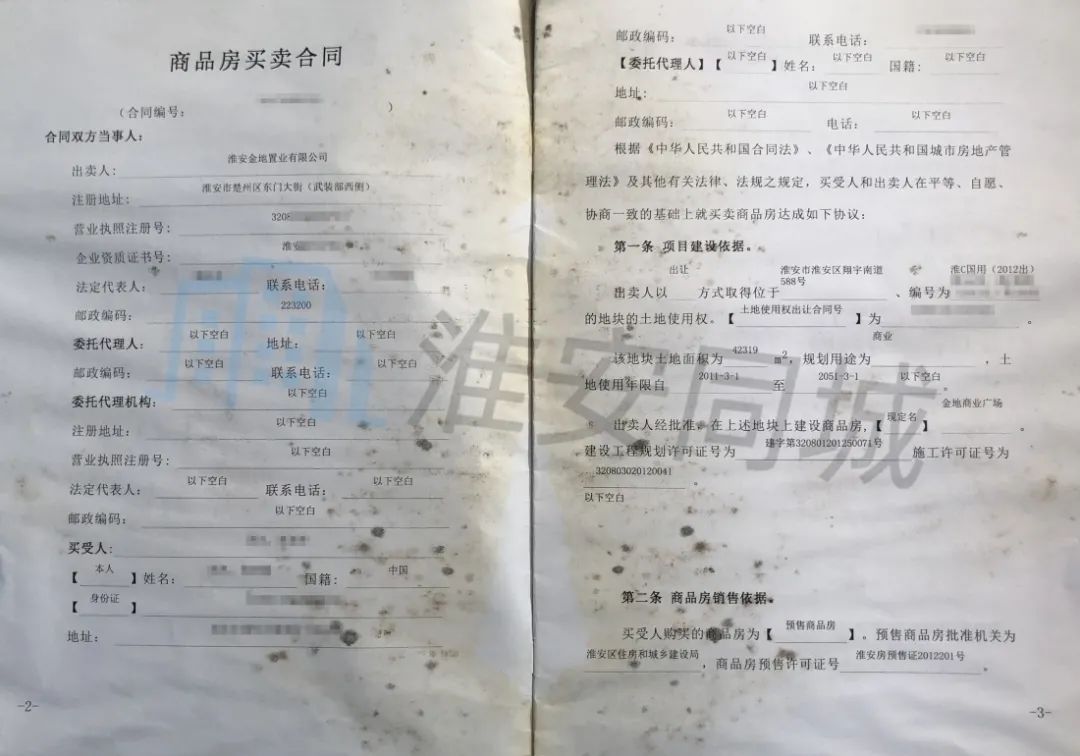 商品房买卖合同
（合同编号： ）
合同双方当事人：
出卖人： 淮安金地置业有限公司
注册地址： 淮安市楚州区东门大街（武装部西侧）
营业执照注册号： 3208
企业资质证书号： 淮安
法定代表人： 联系电话：
邮政编码： 223200
委托代理人： 以下空白 地址： 以下空白
邮政编码： 以下空白 联系电话： 以下空白
委托代理机构： 以下空白
注册地址： 以下空白
营业执照注册号： 以下空白
法定代表人： 以下空白 联系电话： 以下空白
邮政编码： 以下空白
买受人：
【 本人 】姓名： 国籍： 中国
【 身份证 】
地址：
-2-
邮政编码： 以下空白 联系电话：
【委托代理人】【 以下空白 】姓名： 以下空白 国籍： 以下空白
地址： 以下空白
邮政编码： 以下空白 电话： 以下空白
根据《中华人民共和国合同法》、《中华人民共和国城市房地产管
理法》及其他有关法律、法规之规定，买受人和出卖人在平等、自愿、
协商一致的基础上就买卖商品房达成如下协议：
第一条 项目建设依据。
出卖人以 出让 方式取得位于 淮安市淮安区翔宇南道588号 、编号为 淮C国用（2012出）
的地块的土地使用权。【 土地使用权出让合同号 】为 。
该地块土地面积为 42319 m²，规划用途为 商业 ，土
地使用年限自 2011-3-1 至 2051-3-1 以下空白 。
出卖人经批准，在上述地块上建设商品房，【 现定名 】 金地商业广场 。
建设工程规划许可证号为 建字第320801201250071号 施工许可证号为
320803020120041 。
以下空白
第二条 商品房销售依据。
买受人购买的商品房为【 预售商品房 】。预售商品房批准机关为
淮安区住房和城乡建设局 ，商品房预售许可证号 淮安房预售证2012201号 。
-3-
淮安同城